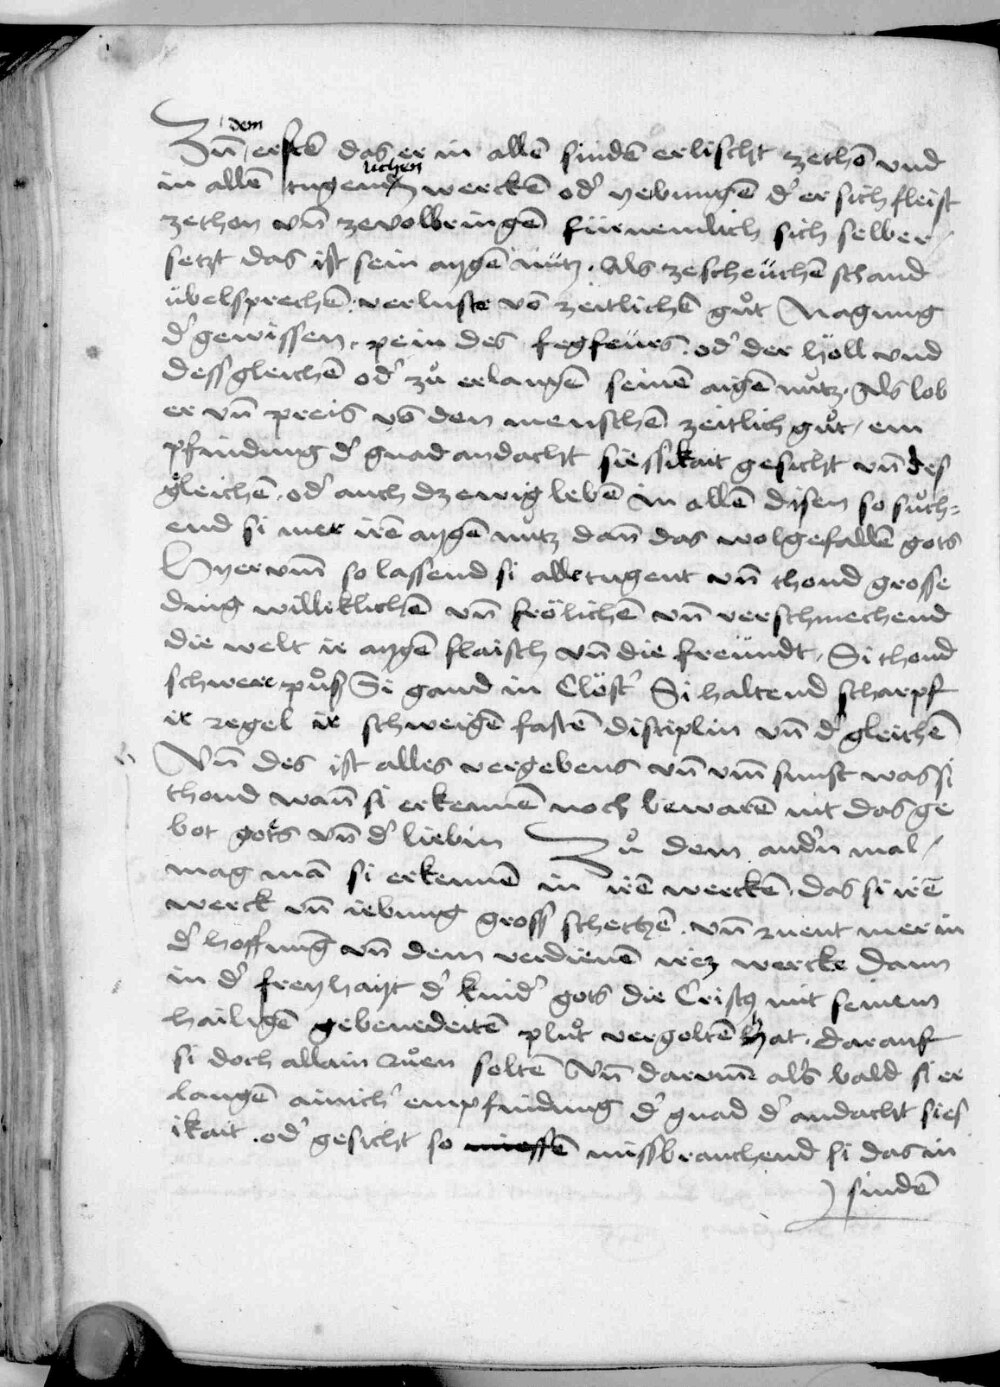 dem
Zuͦ erstē das er in allē sindē erlischt zethō vnd
lichen
in allē tugend werckē od' yebungē d' er sich fleist
zethon vn̄ zevolbringē fürnemlich sich selber
setzt das ist sein aygē nutz. Als zescheüchē schand
übelsprechē. verluste vō zeitlichē guͦt Nagung
d' gewissen. pein des fegfeürs. od' der höll vnd
dessgleichē od' zuͦ erlangē seinē aigē nutz. Als lob
er vn̄ preis vō den menschē zeitlich guͦt / em
pfindung d' gnad andacht siessikait gesicht vn̄ des
gleichē. od' auch dz ewig lebē in allē disen so suͦch=
end si mer irē aygē nutz dan̄ das wolgefallē gots
Hyervm̄ so lassend si alle tugent vn̄ thond grosse
ding williklichē vn̄ frölichē vn̄ verschmechend
die welt ir aygē flaisch vn̄ die freündt. Si thond
schwere puͦss Si gand in Clöst' Si haltend scharpf
ir regel ir schweigē fastē disciplin vn̄ d' gleichē
Vn̄ des ist alles vergebens vn̄ vm̄ sunst was si
thond wan̄ si erkennē noch bewarē nit das ge
bot gots vn̄ d' liebin Zuͦ dem and'n mal /
mag mā si erkennē in irē werckē. das si irē
werck vn̄ iebung gross schetzē. vn̄ ruent mer in
d' hoffnung vn̄ dem verdienē irez wercke dann
in d' freyhayt d' kind' gots die Cristꝰ mit seinem
hailigē gebenedeitē pluͦt vergoltē hat. darauf
si doch allain ruͦen soltē Vn̄ darvmē als bald si er
langē ainich' empfindung d' gnad d' andacht sies
ikait. od' gesicht so missbrauchend si das in
sindē